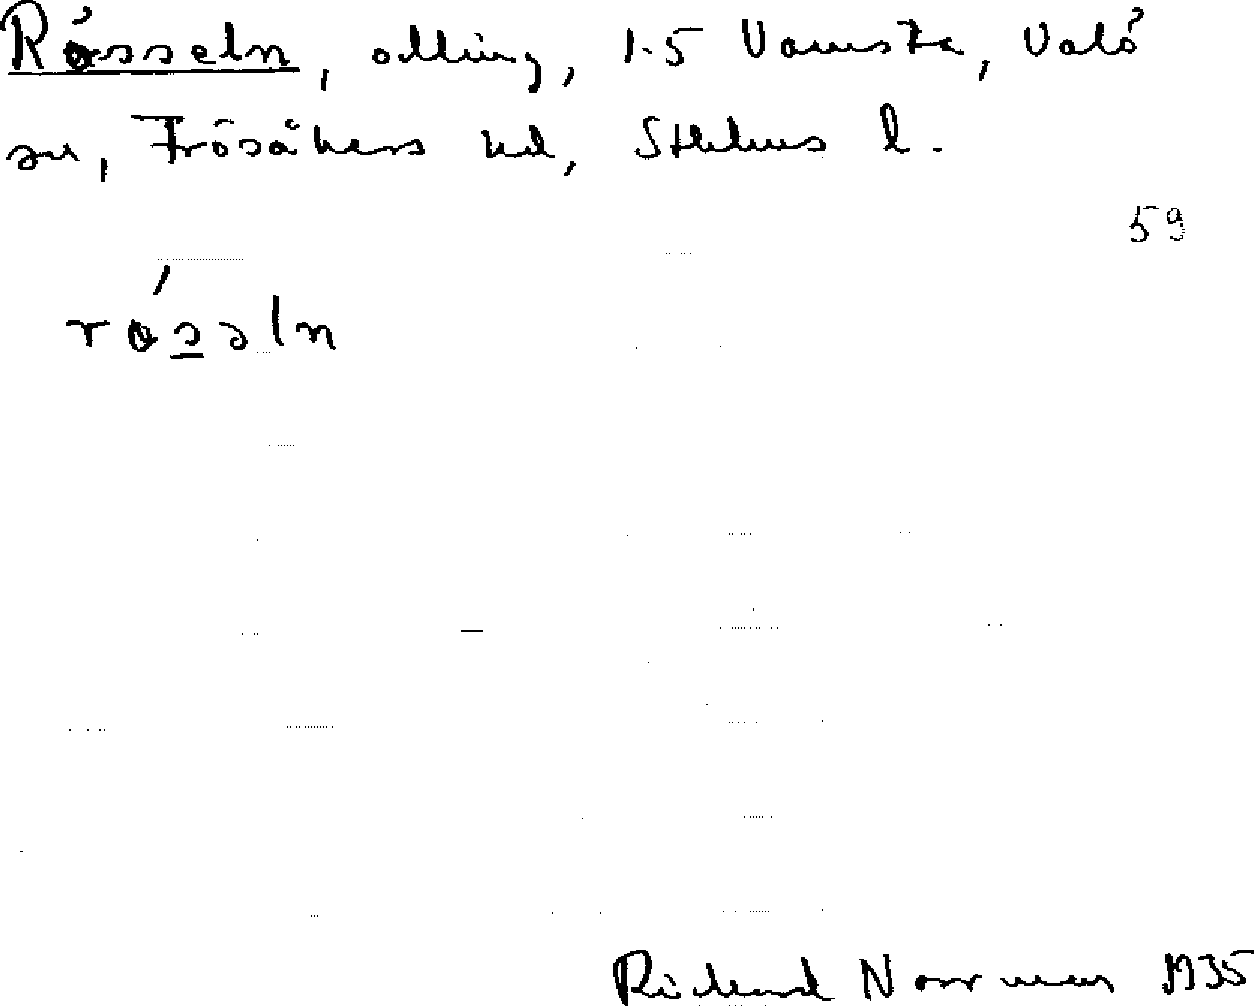 Rösseln, odling, 1-5 Vamsta, Valö
sn, Frösåkers hd, Sthlms l.
59
rössln
Rickard Norrman 1935